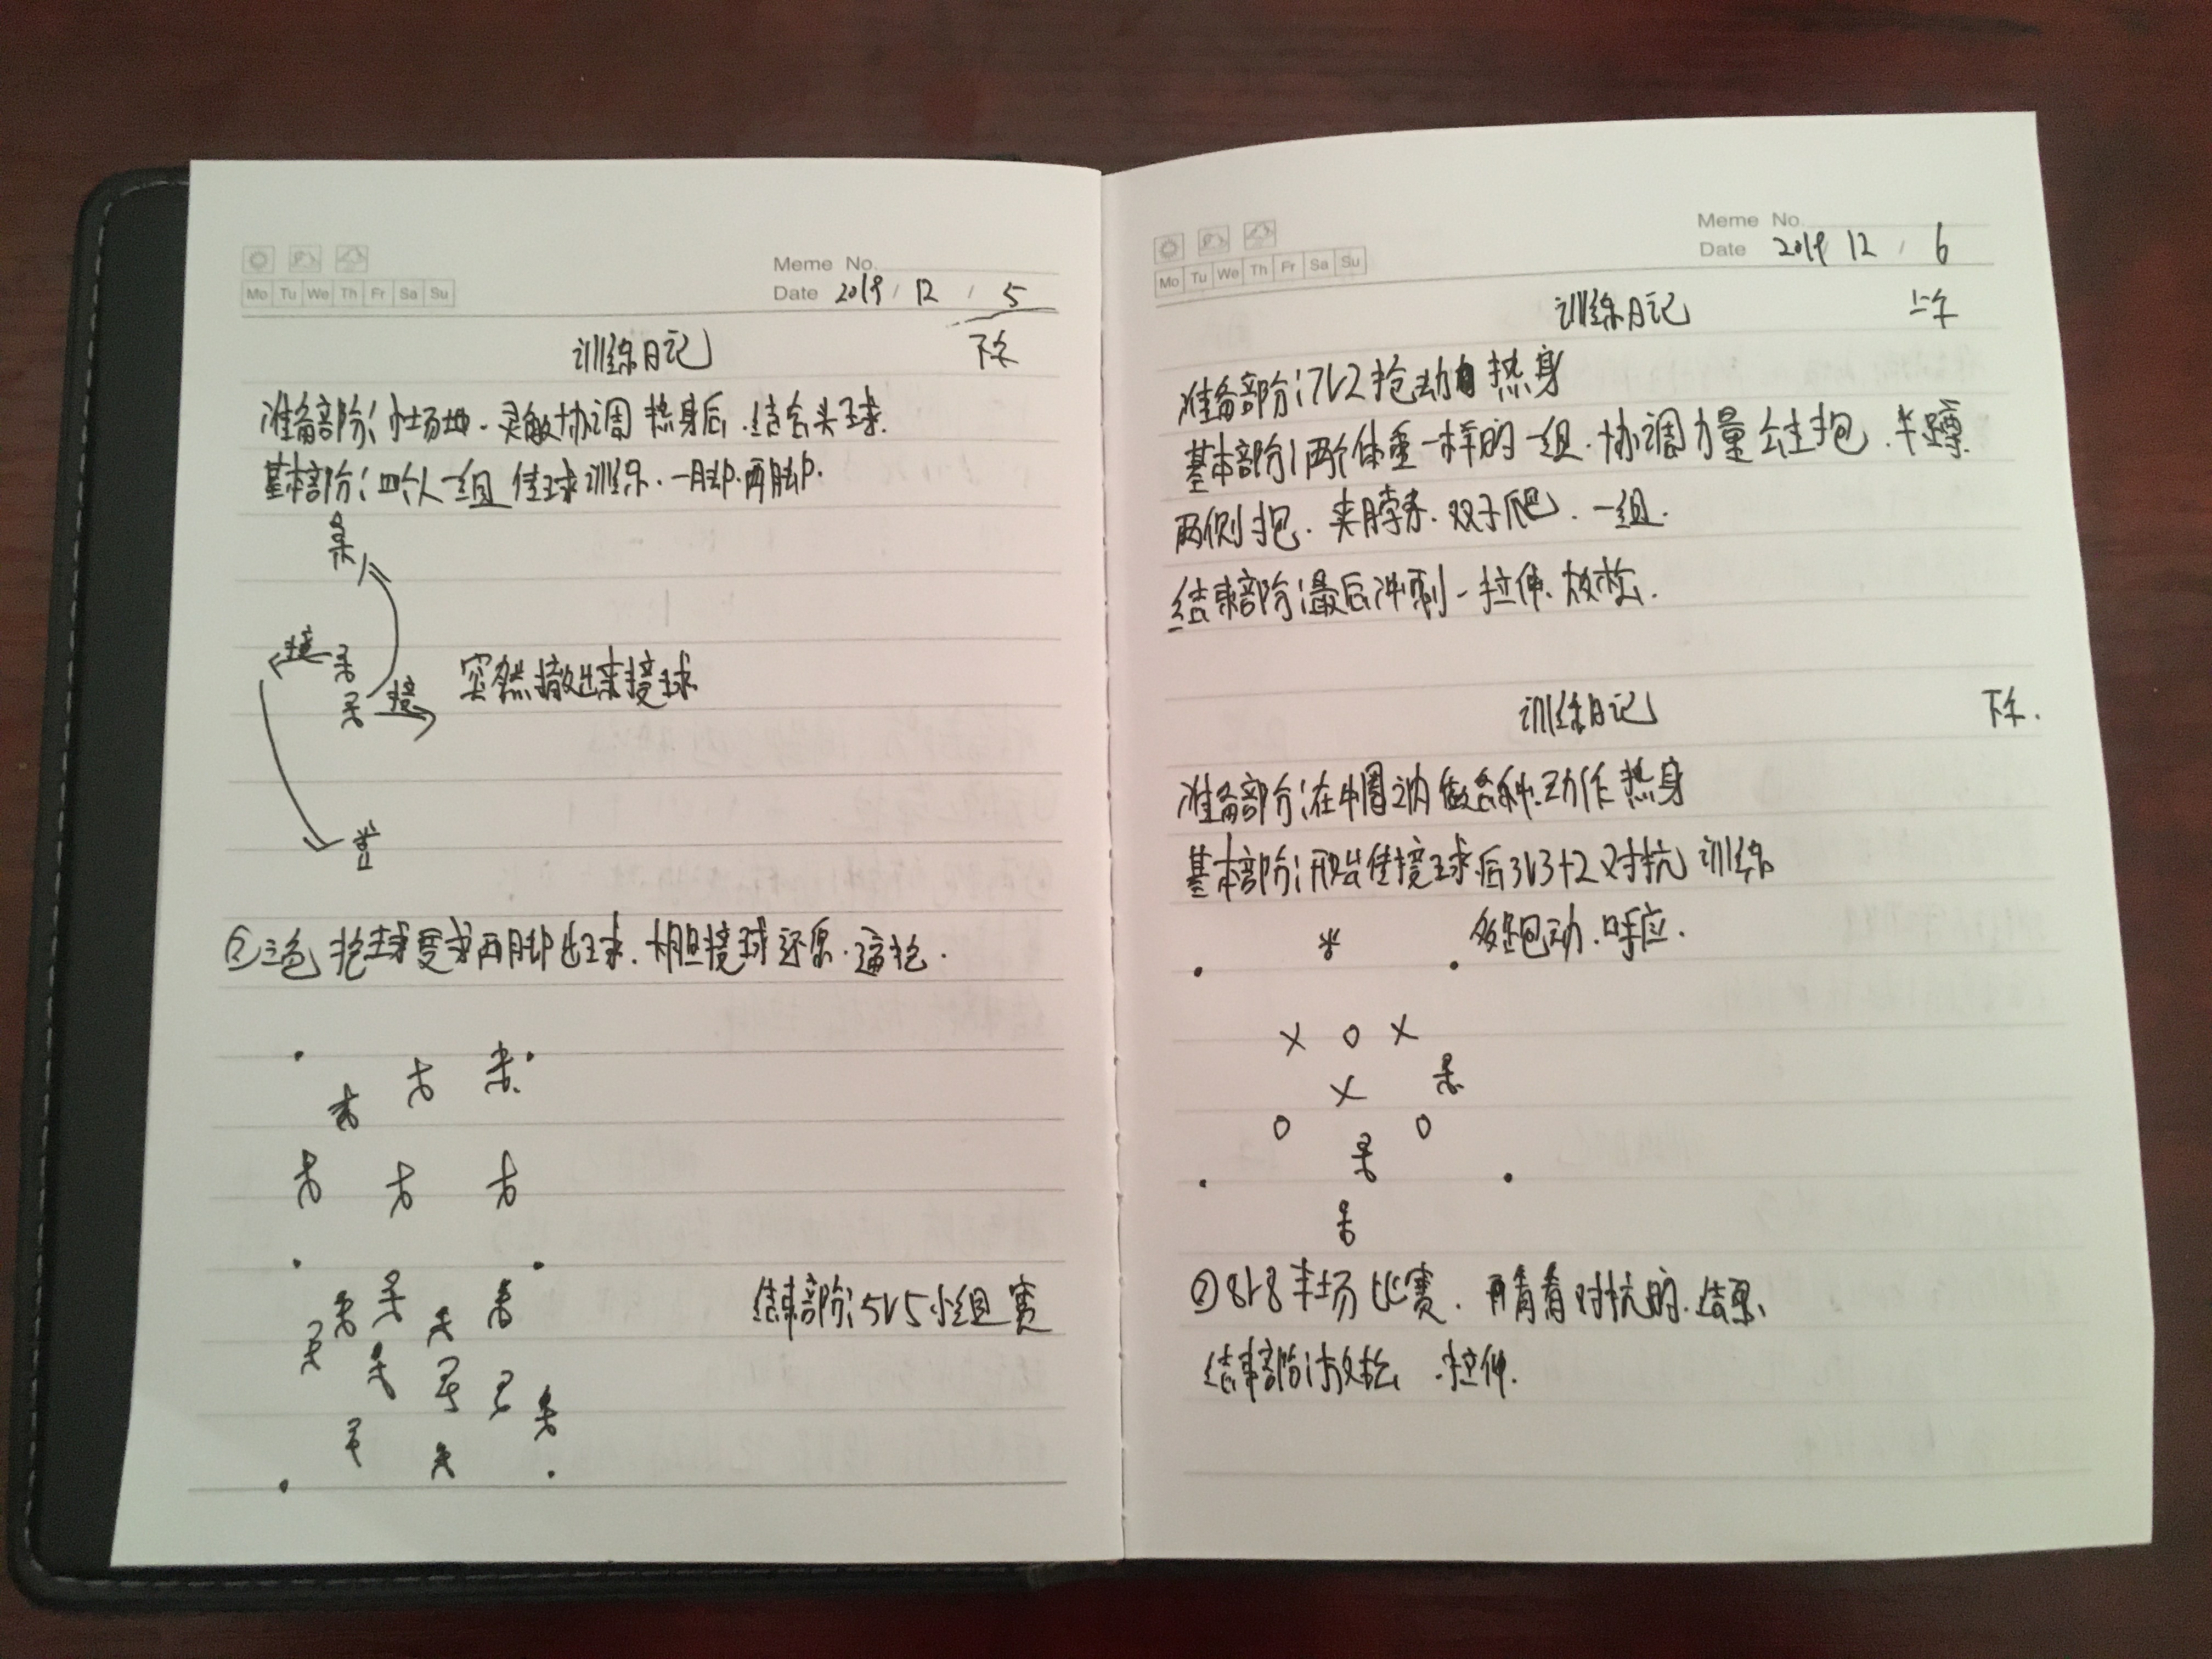 Mo Tu We Th Fr Sa Su
Meme No.
Date 2019 / 12 / 5
训练日记 下午
准备部分:小场地、灵敏协调热身后、结合头球.
基本部分:四个人一组 传球训练、一脚、两脚.
接
接 突然撤出来接球
②三色抢球要求两脚出球、大胆接球还原、逼抢.
结束部分:5V5小组赛
Mo Tu We Th Fr Sa Su
Meme No.
Date 2019 12 / 6
训练日记 上午
准备部分:7V2抢 热身
基本部分:两个体重一样的一组、协调力量 抱、半蹲
两侧抱、夹脖 、双子爬、一组.
结束部分:最后冲刺、拉伸、放松.
训练日记 下午.
准备部分:在中圈之内做各种动作热身
基本部分: 传接球后3V3+2对抗训练
多跑动、呼应.
②8V8半场比赛、再看看对抗的、结果、
结束部分:放松、拉伸.